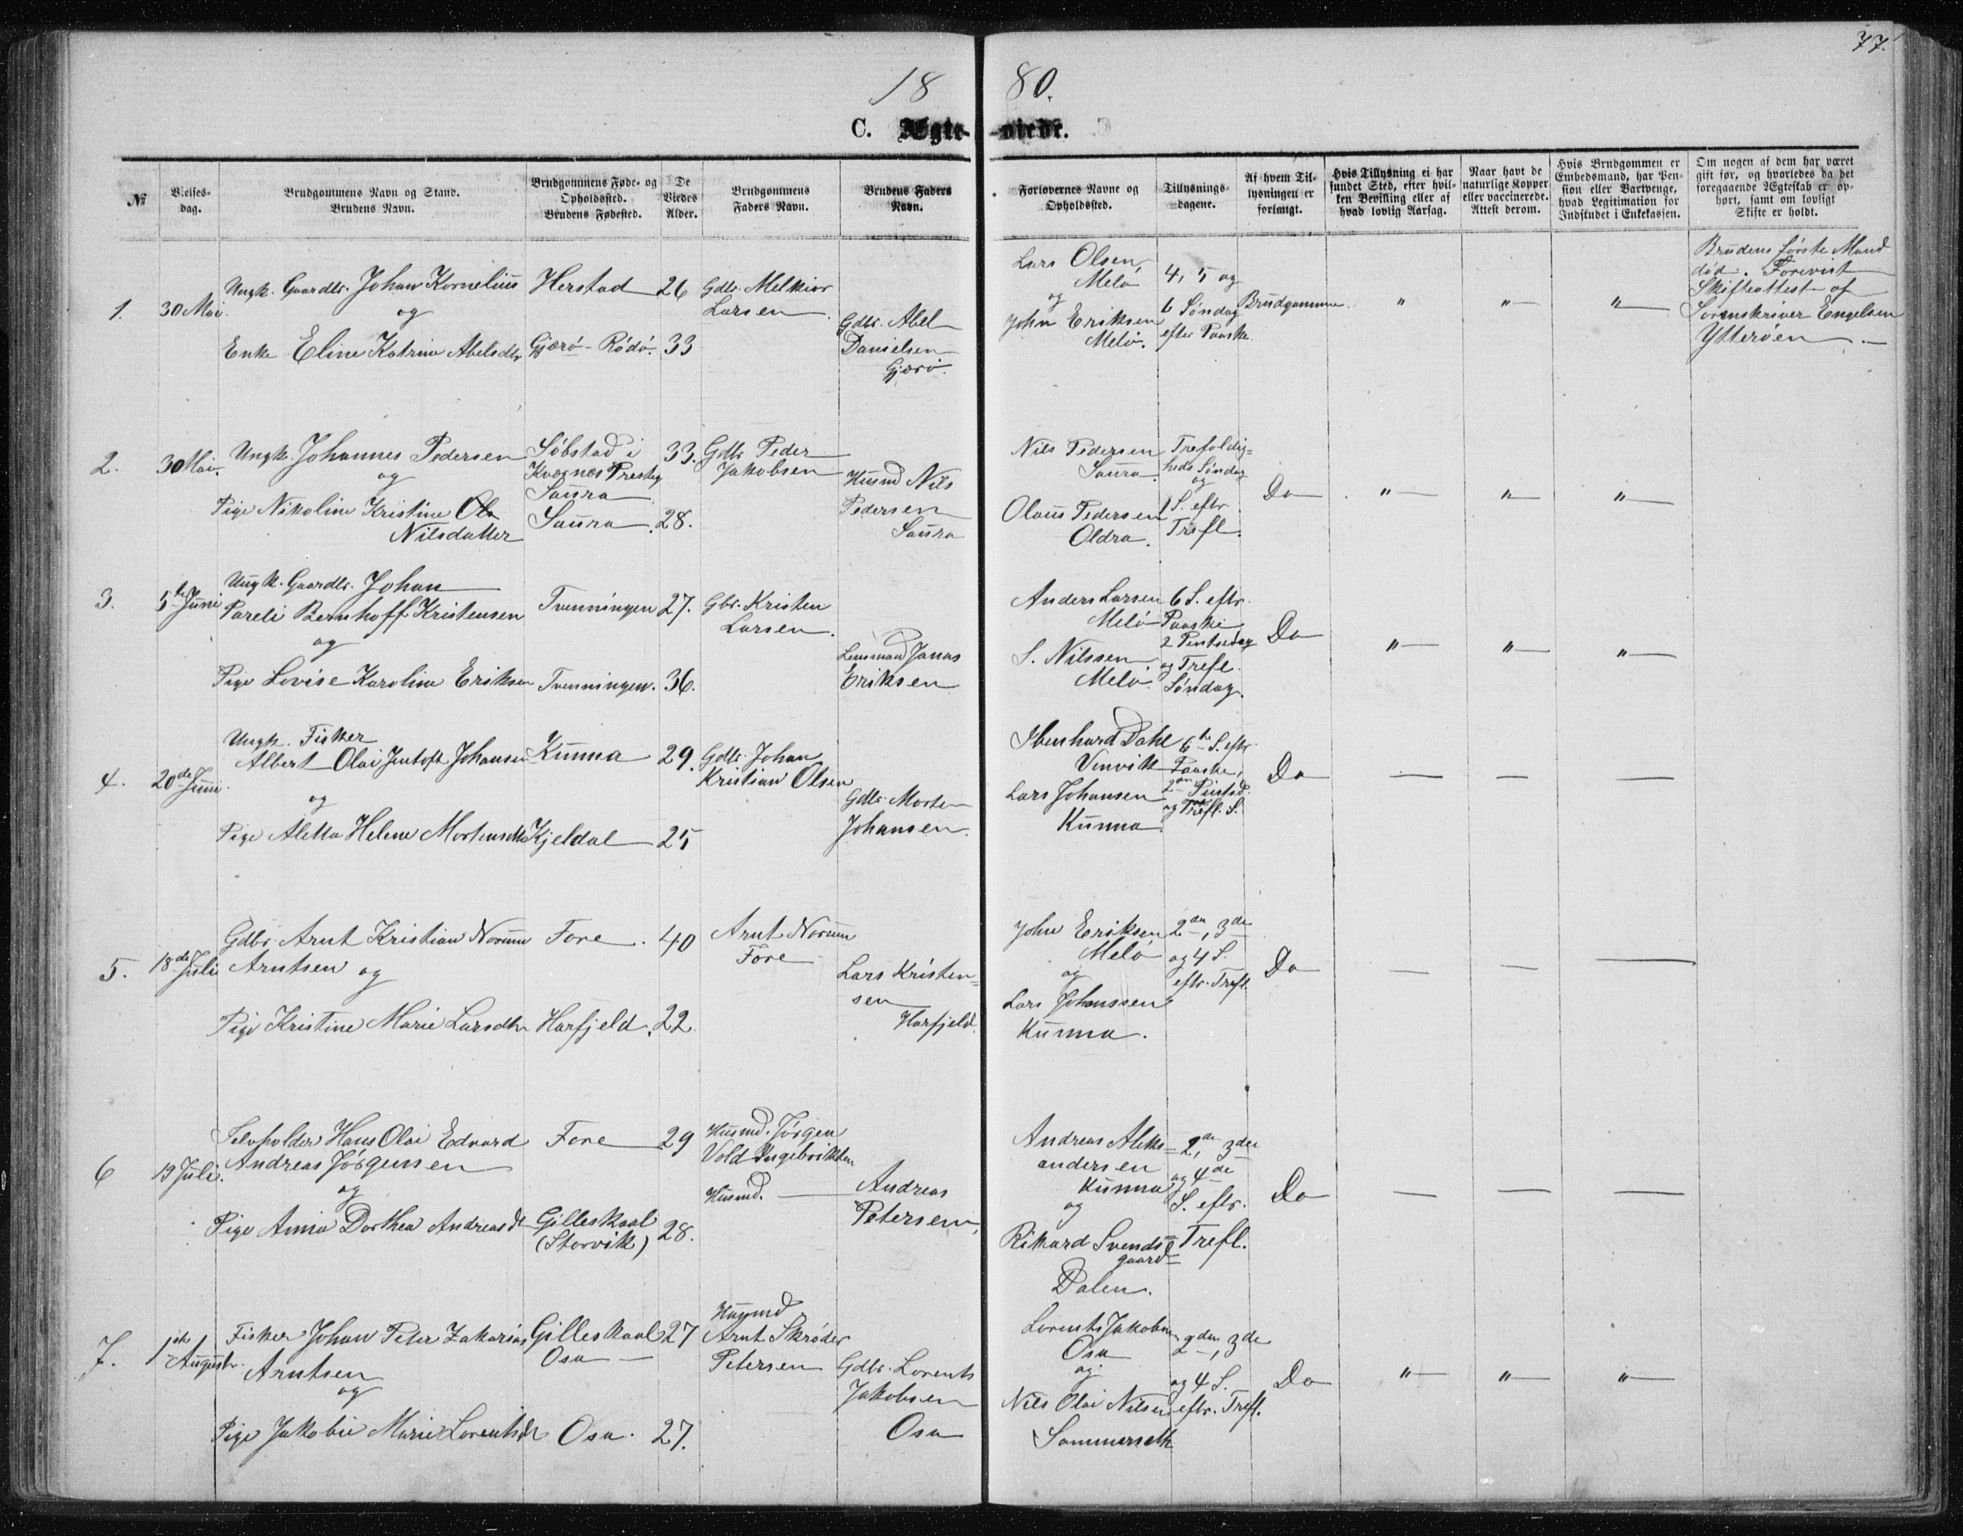 77.
18 80.
C. Ægte- -viede.
№
Vielses-
dag.
Brudgommens Navn og Stand.
Brudens Navn.
Brudgommens Føde- og
Opholdssted.
Brudens Fødested.
De
Viedes
Alder.
Brudgommens
Faders Navn.
Brudens Faders
Navn.
Forlovernes Navne og
Opholdssted.
Tillysnings-
dagene.
Af hvem Til-
lysningen er
forlangt.
Hvis Tillysning ei har
fundet Sted, efter hvil-
ken Bevilling eller af
hvad lovlig Aarsag.
Naar havt de
naturlige Kopper
eller vaccinerede.
Attest derom.
Hvis Brudgommen er
Embedsmand, har Pen-
sion eller Vartpenge,
hvad Legitimation for
Indskudet i Enkekassen.
Om nogen af dem har været
gift før, og hvorledes da det
foregaaende Ægteskab er op-
hørt, samt om lovligt
Skifte er holdt.
1.
30 Mai.
Ungk. Gaardbr. Johan Kornelius
og
Enke Eline Katrina Abelsdtr
Herstad
Gjerø - Rødø.
26
33
Gdbr. Melkior
Larsen.
Gdbr. Abel
Danielsen
Gjerø.
Lars Olsen,
Melø
og
John Eriksen
Melø.
4, 5 og
6 Søndag
efter Paaske
Brudgommen.
" "— "—
Brudens første Mand
død. Forevist
Skifteattest af
Sorenskriver Engelsen
Ytterøen.—
2.
30 Mai.
Ungk. Johannes Pedersen
og
Pige Nikoline Kristine Ols
Nilsdatter
Søbstad i
Kvægnæs Prestg
Saura
Saura.
33.
28.
Gdbr Peder
Jakobsen
Husmd Nils
Pedersen
Saura
Nils Pedersen
Saura.
Olaus Pedersen
Oldra.
Trefoldig=
heds Søndag
og
1 S. eftr
Trefl.
Do
"— "— "—
3.
5te Juni
Ungk. Gaardbr. Johan
Pareli Bernhoff Kristensen
og
Pige Lovise Karoline Eriksen
Tvenningen
Tvenningen.
27.
36.
Gbr. Kristen
Larsen.
Lensmand Jonas
Eriksen
Anders Larsen
Melø
S. Nilssen
Melø.
6 S. eftr.
Paaske
2 Pintsedag
og Trefl.
Søndag.
Do
"— "— "—
4.
20de Juni.
Ungk. Fisker
Albert Olai Jentoft Johansen
og
Pige Aletta Helene Mortensdtr
Kunna
Kjeldal
29.
25
Gdbr. Johan
Kristian Olsen
Gdbr. Morten
Johansen.
Ibenhard Dahl
Venvik
Lars Johansen
Kunna.
6te S. eftr.
Paaske,
og Trefl. S.
Do
— — —
5.
18de Juli
Gdbr Arnt Kristian Norum
Arntsen og
Pige Kristine Marie Larsdtr
Fore.
Harfjeld.
40
22.
Arnt Norum
Fore
Lars Kristen=
sen
Harfjeld.
John Eriksen
Melø
og
Lars Johanssen
Kunna.
2den, 3de
og 4 S.
eftr. Trefl
Do
— — —
6
19 Juli.
Selvholder Hans Olai Edvard
Andreas Jørgensen
og
Pige Anna Dorthea Andreasdt
Fore
Gilleskaal
(Storvik)
29
28.
Husmd. Jørgen
Vold Ingebriktsen
Husmd. —
Andreas
Petersen,
Andreas Aleks=
andersen
Kunna
og
Rikard Svends=
gaard
Dalen.
2den, 3de
og 4de
S. eftr.
Trefl.
Do
— — —
7.
1ste
August.
Fisker Johan Peter Zakarias
Arntsen
og
Pige Jakobie Marie Lorentsdt
Gilleskaal
Osa —
Osa.
27
27.
Husmd
Arnt Skrøder
Petersen
Gdbr. Lorents
Jakobsen
Osa
Lorents Jakobsen
Osa
og
Nils Olai Nilsen
Sommerseth
2den, 3de
og 4 S.
eftr. Trefl.
Do
"— "— "—